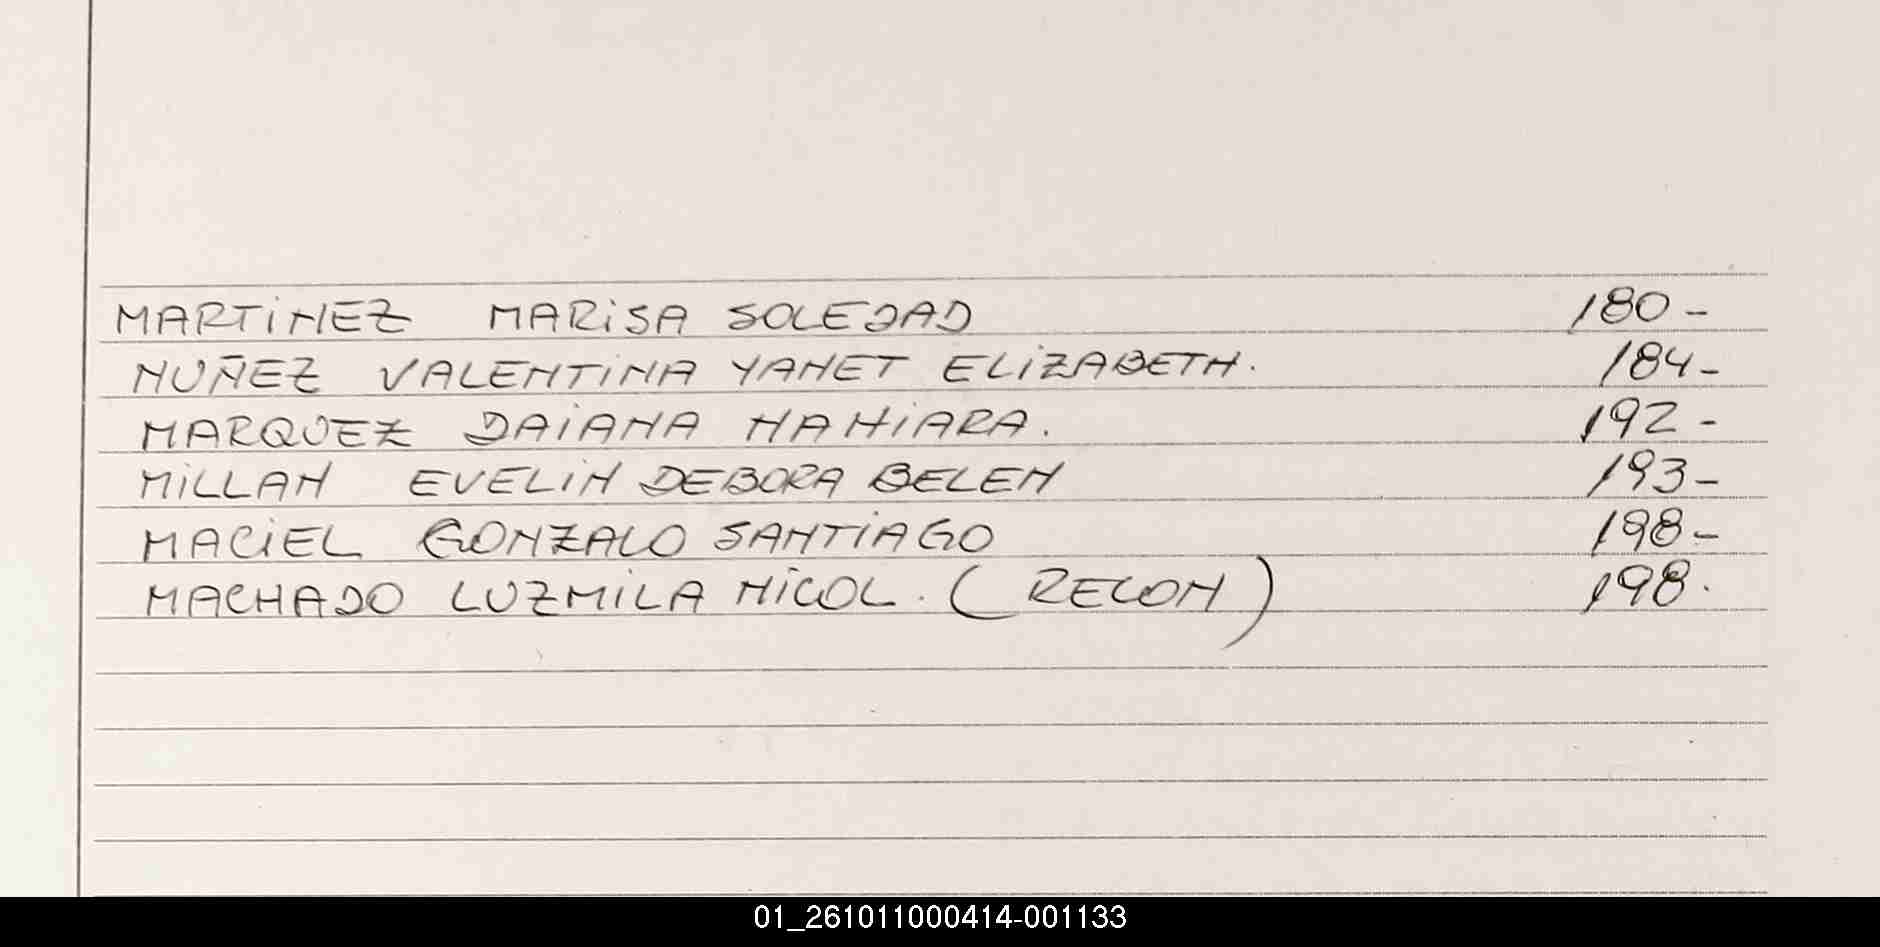 MARTiNEZ MARiSA SOLEDAD 180-
NUÑEZ VALENTiNA YANET ELiZABETH. 184-
MARQUEZ DAiANA NAHiARA. 192-
MiLLAN EVELiN DEBORA BELEN 193-
MACiEL GONZALO SANTiAGO 198-
MACHADO LUZMiLA NiCOL. (RECON) 198.
01_261011000414-001133